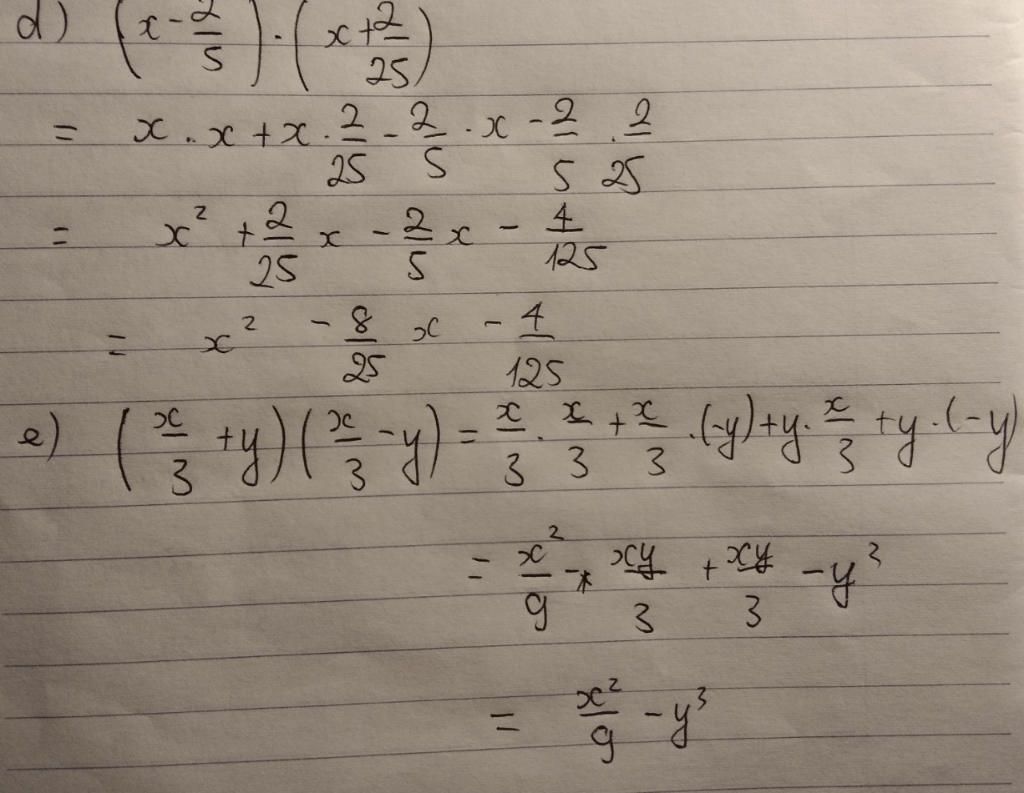 d) (x - 2/5) · (x + 2/25)
= x · x + x · 2/25 - 2/5 · x - 2/5 · 2/25
= x² + 2/25 x - 2/5 x - 4/125
= x² - 8/25 x - 4/125
e) (x/3 + y)(x/3 - y) = x/3 · x/3 + x/3 · (-y) + y · x/3 + y · (-y)
= x²/9 - xy/3 + xy/3 - y³
= x²/9 - y³